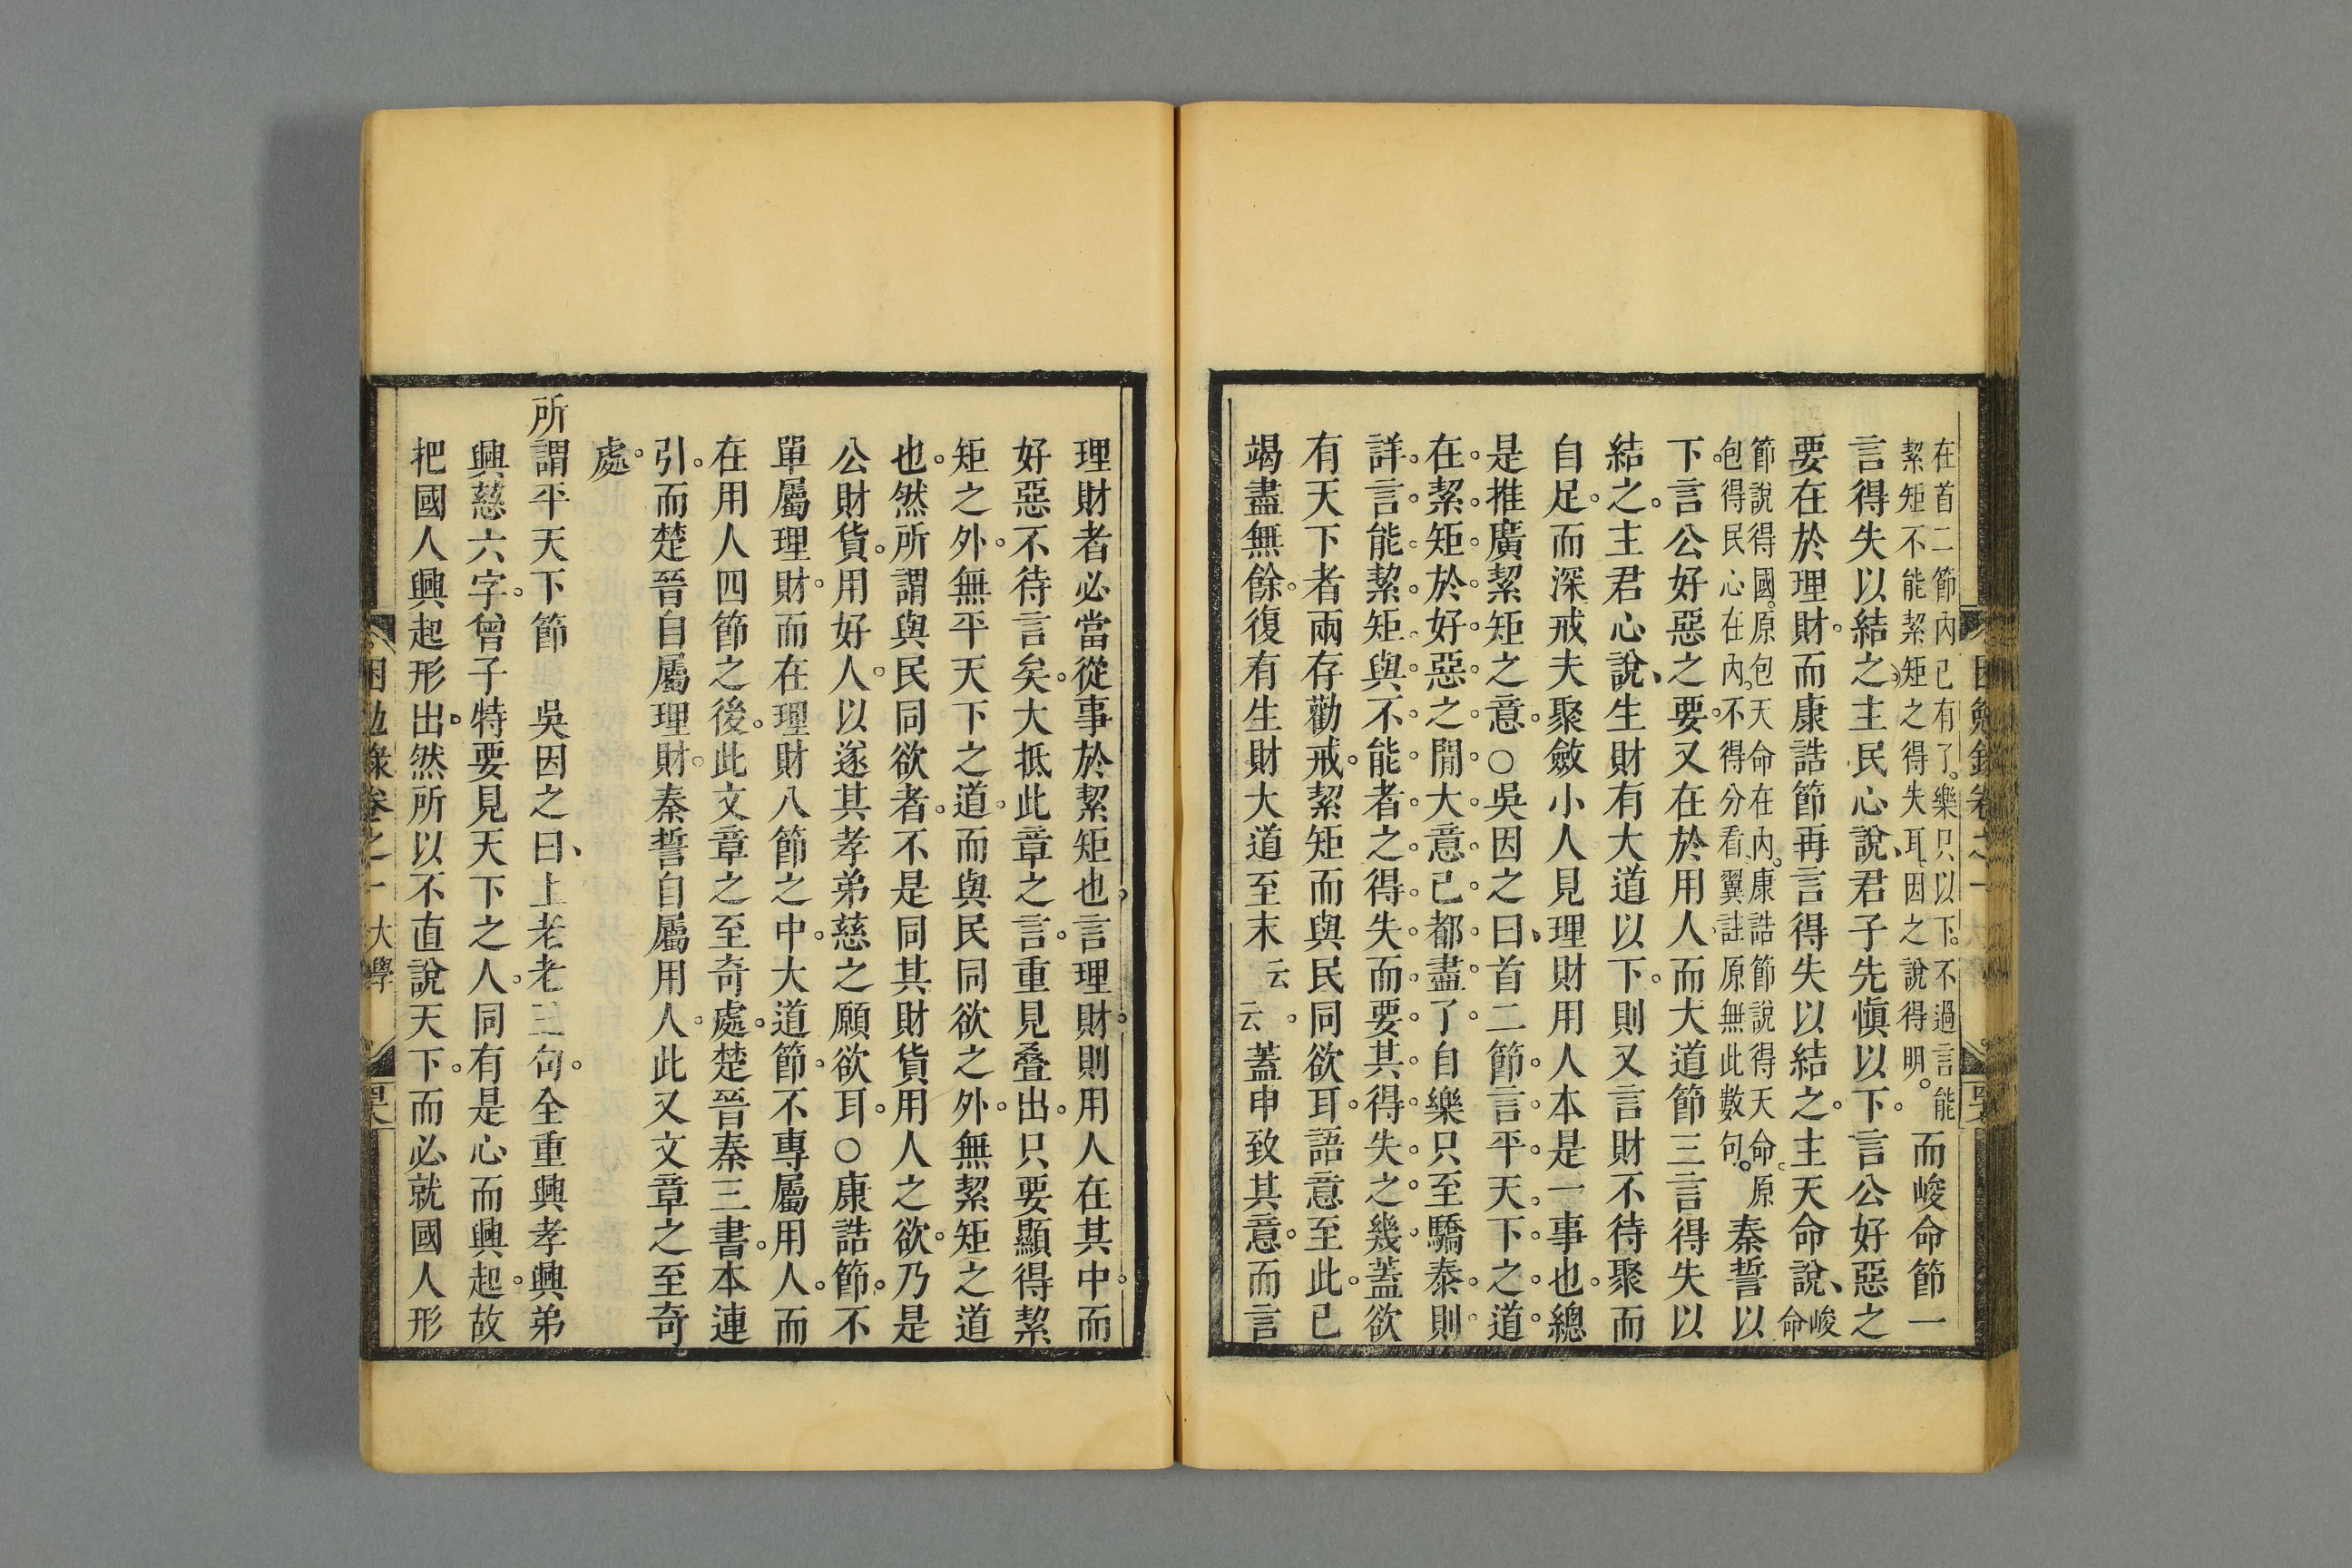 在首二節內已有了。樂只以下。不過言能
絜矩不能絜矩之得失耳。因之說得明。
而峻命節一
言得失以結之。主民心說、君子先愼以下。言公好惡之
要在於理財。而康誥節再言得失以結之。主天命說、峻命
節說得國。原包天命在內。康誥節說得天命。原
包得民心在內。不得分看。翼註原無此數句。
秦誓以
下。言公好惡之要。又在於用人。而大道節三言得失以
結之。主君心說、生財有大道以下。則又言財不待聚而
自足。而深戒夫聚斂小人。見理財用人本是一事也。總
是推廣絜矩之意。○吳因之曰、首二節。言平天下之道。
在絜矩於好惡之閒。大意已都盡了。自樂只至驕泰。則
詳言能絜矩與不能者之得失。而要其得失之幾。蓋欲
有天下者兩存勸戒。絜矩而與民同欲耳。語意至此。已
竭盡無餘。復有生財大道至末云云。蓋申致其意。而言
理財者必當從事於絜矩也。言理財。則用人在其中。而
好惡不待言矣。大抵此章之言。重見叠出。只要顯得絜
矩之外。無平天下之道。而與民同欲之外。無絜矩之道
也。然所謂與民同欲者。不是同其財貨用人之欲。乃是
公財貨。用好人。以遂其孝弟慈之願欲耳。○康誥節。不
單屬理財。而在理財八節之中。大道節。不專屬用人。而
在用人四節之後。此文章之至奇處。楚晉秦三書。本連
引。而楚晉自屬理財。秦誓自屬用人。此又文章之至奇
處。
所謂平天下節　吳因之曰、上老老三句。全重興孝興弟
興慈六字。曾子特要見天下之人。同有是心而興起。故
把國人興起形出。然所以不直說天下。而必就國人形
困勉錄卷之一　大學